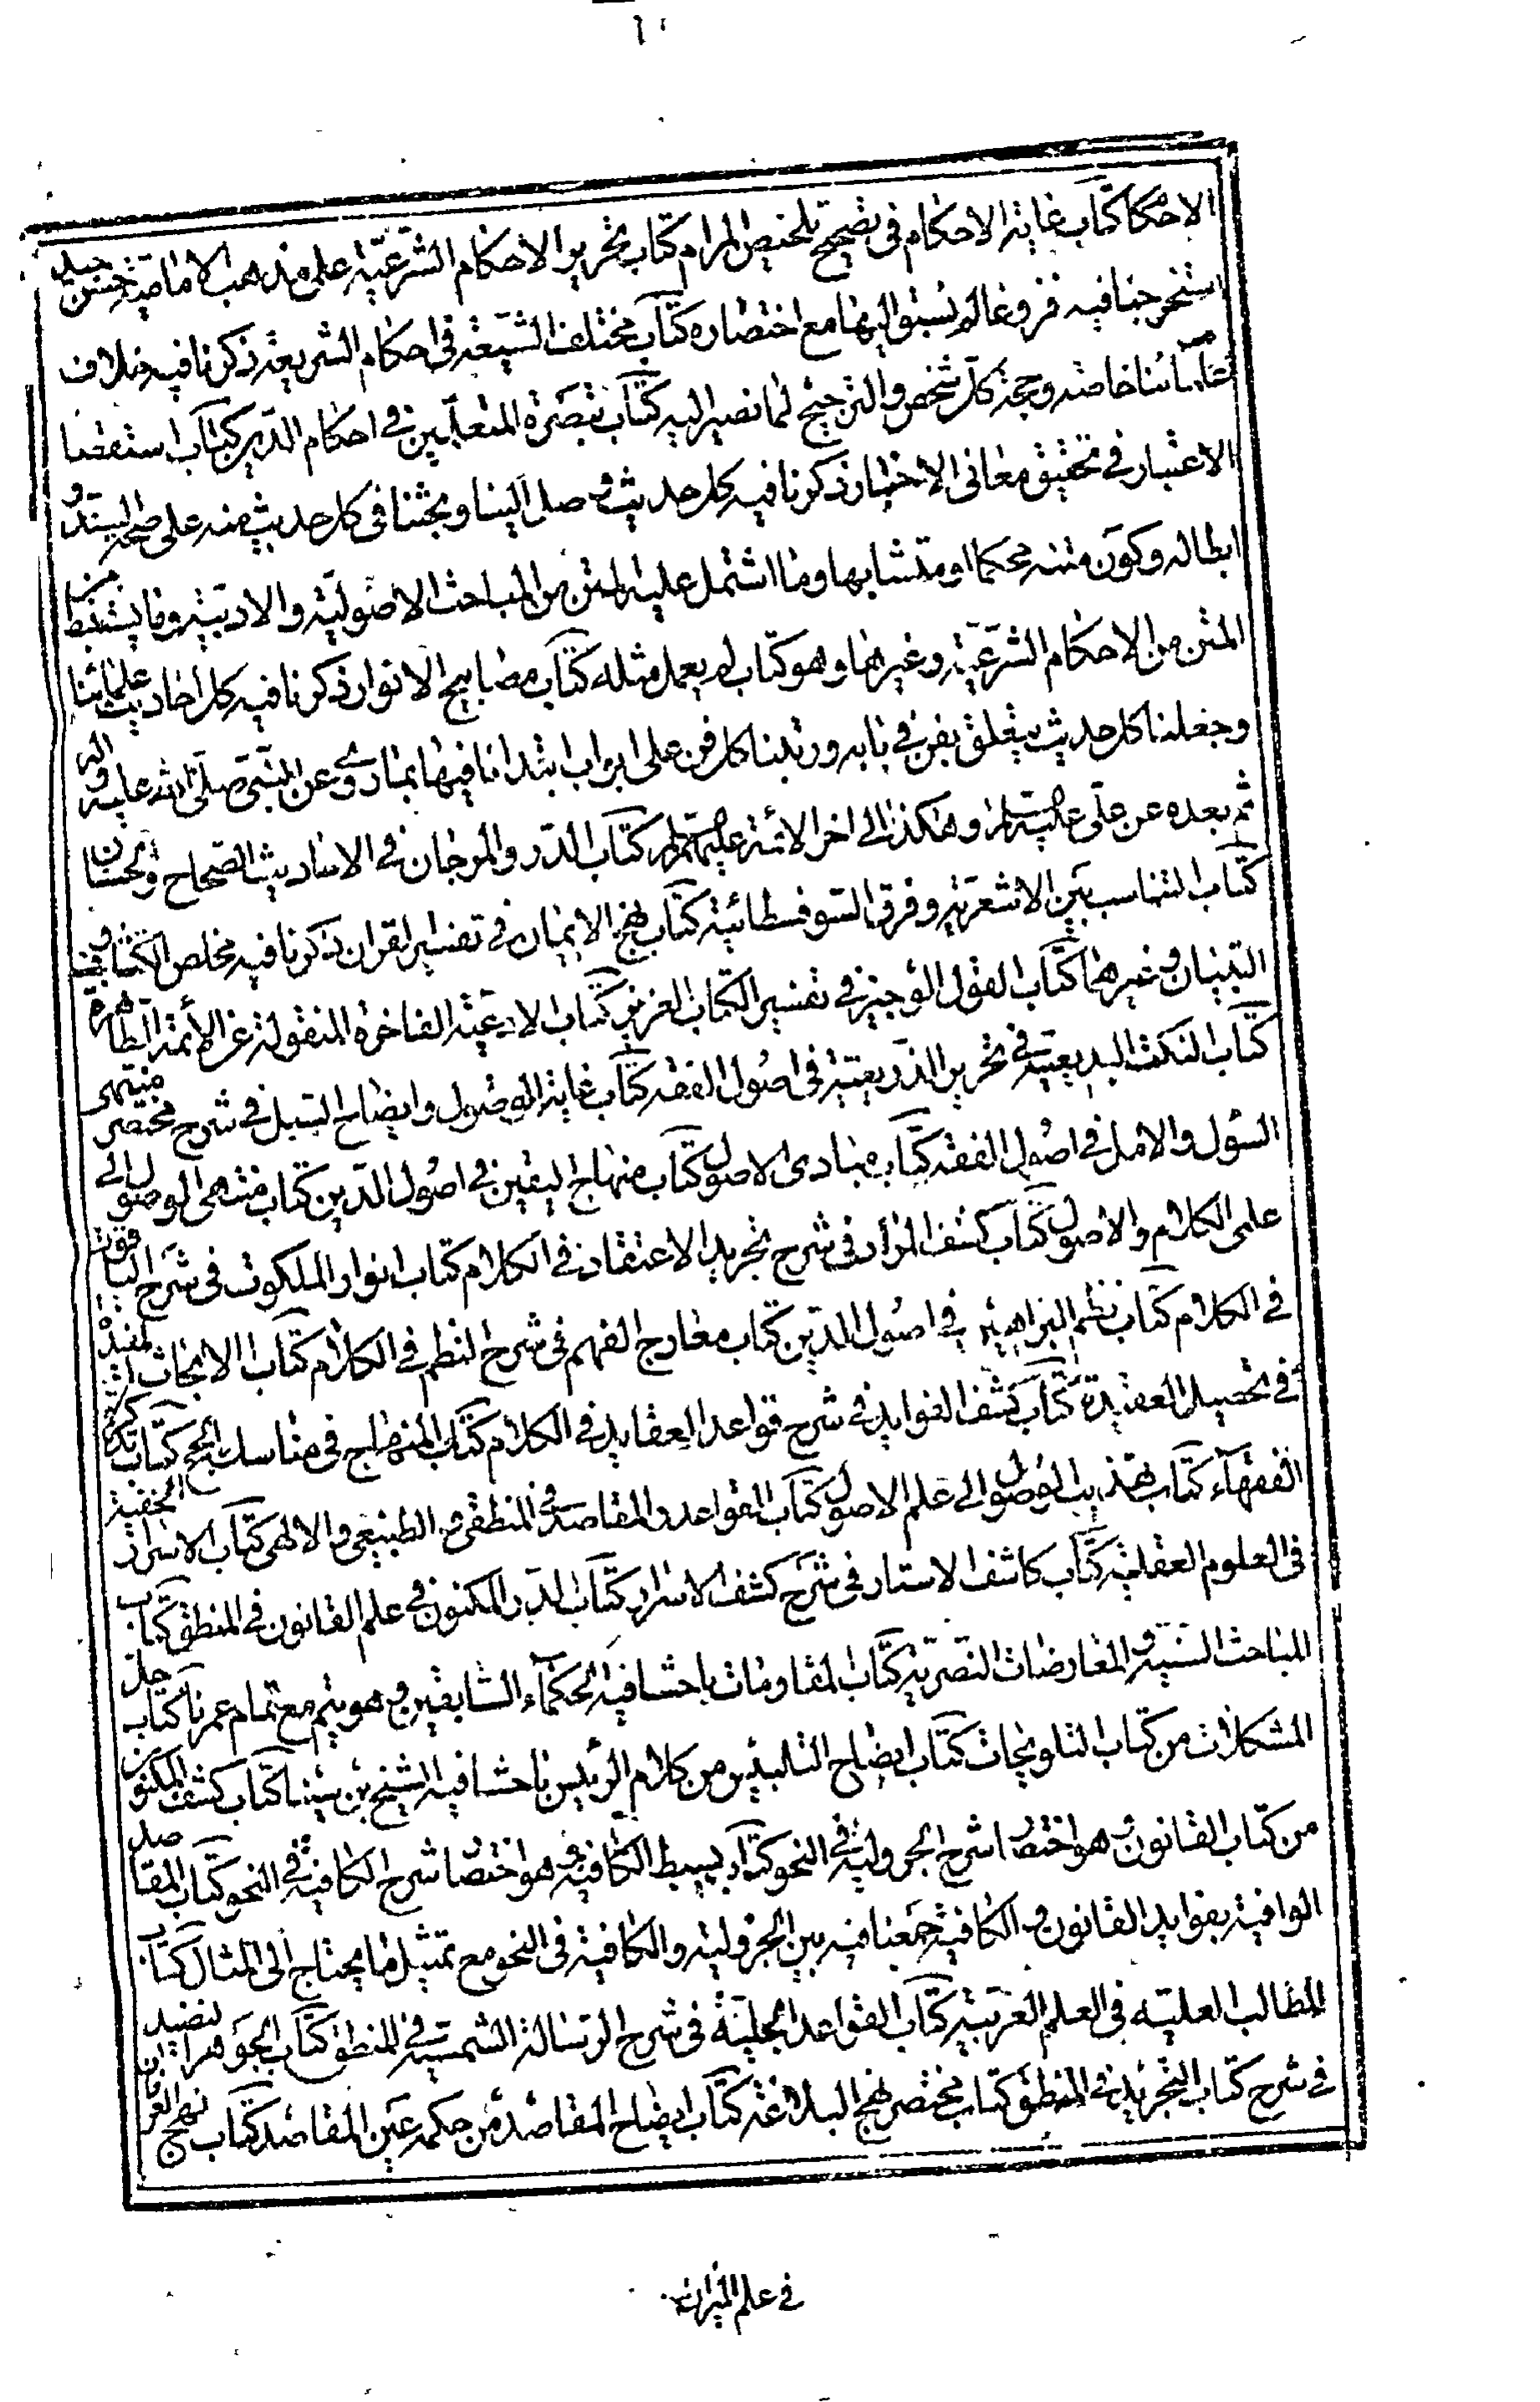 الاحكام كتاب غاية الاحكام فى تصحيح تلخيص المرام كتاب تحرير الاحكام الشرعية على مذهب الامامية حسن جيد
استخرجنا فيه فروعا لم نسبق اليها مع اختصاره كتاب مختلف الشيعة فى احكام الشريعة ذكرنا فيه خلاف
علمائنا خاصة و حجة كل شخص و الترجيح لما نصير اليه كتاب تبصرة المتعلمين فى احكام الدين كتاب استقصا
الاعتبار فى تحقيق معانى الاخبار ذكرنا فيه كل حديث وصل الينا و بحثنا فى كل حديث منه على صحة السند و
ابطاله و كون متنه محكما او متشابها و ما اشتمل عليه المتن من المباحث الاصولية و الادبية و ما يستنبط من
المتن من الاحكام الشرعية و غيرهما و هو كتاب لم يعمل مثله كتاب مصابيح الانوار ذكرنا فيه كل احاديث علمائنا
و جعلنا كل حديث يتعلق بفن فى بابه و رتبنا كل فن على ابواب ابتدانا فيها بما روى عن النبى صلى الله عليه و اله
ثم بعده عن على عليه السلام و هكذا الى اخر الائمة عليهم السلام كتاب الدر و المرجان فى الاحاديث الصحاح و الحسان
كتاب التناسب بين الاشعرية و فرق السوفسطائية كتاب نهج الايمان فى تفسير القران ذكرنا فيه مخلص الكشاف و
التبيان و غيرهما كتاب القول الوجيز فى تفسير الكتاب العزيز كتاب الادعية الفاخرة المنقولة عن الأئمة الطاهرة
كتاب النكت البديعية فى تحرير الذريعية فى اصول الفقه كتاب غاية الوصول و ايضاح السبل فى شرح مختصر منتهى
السؤل و الامل فى اصول الفقه كتاب مبادى الاصول كتاب منهاج اليقين فى اصول الدين كتاب منتهى الوصول الى
علمى الكلام و الاصول كتاب كشف المراد فى شرح تجريد الاعتقاد فى الكلام كتاب انوار الملكوت فى شرح الياقوت
فى الكلام كتاب نظم البراهين فى اصول الدين كتاب معارج الفهم فى شرح النظم فى الكلام كتاب الابحاث المفيدة
فى تحصيل العقيدة كتاب كشف الفوايد فى شرح قواعد العقايد فى الكلام كتاب المنهاج فى مناسك الحج كتاب تذكرة
الفقهاء كتاب تهذيب الوصول الى علم الاصول كتاب القواعد و المقاصد فى المنطق و الطبيعى و الالهى كتاب الاسرار الخفية
فى العلوم العقلية كتاب كاشف الاستار فى شرح كشف الاسرار كتاب الدر المكنون فى علم القانون فى المنطق كتاب
المباحث السنية و المعارضات النصرية كتاب المقاومات باحثنا فيه الحكماء السابقين و هو يتم مع تمام عمرنا كتاب حل
المشكلات من كتاب التلويحات كتاب ايضاح التلبيس من كلام الرئيس باحثنا فيه الشيخ بن سينا كتاب كشف المكنون
من كتاب القانون و هو اختصار شرح الجزولية فى النحو كتاب بسيط الكافية و هو اختصار شرح الكافية فى النحو كتاب المقاصد
الوافية بفوايد القانون و الكافية جمعنا فيه بين الجزولية و الكافية فى النحو مع تمثيل ما يحتاج الى المثال كتاب
المطالب العلية فى العلم العربية كتاب القواعد الجلية فى شرح الرسالة الشمسية فى المنطق كتاب الجوهر النضيد
فى شرح كتاب التجريد فى المنطق كتاب مختصر نهج البلاغة كتاب ايضاح المقاصد من حكمة عين المقاصد كتاب نهج العرفان
فى علم الميزان